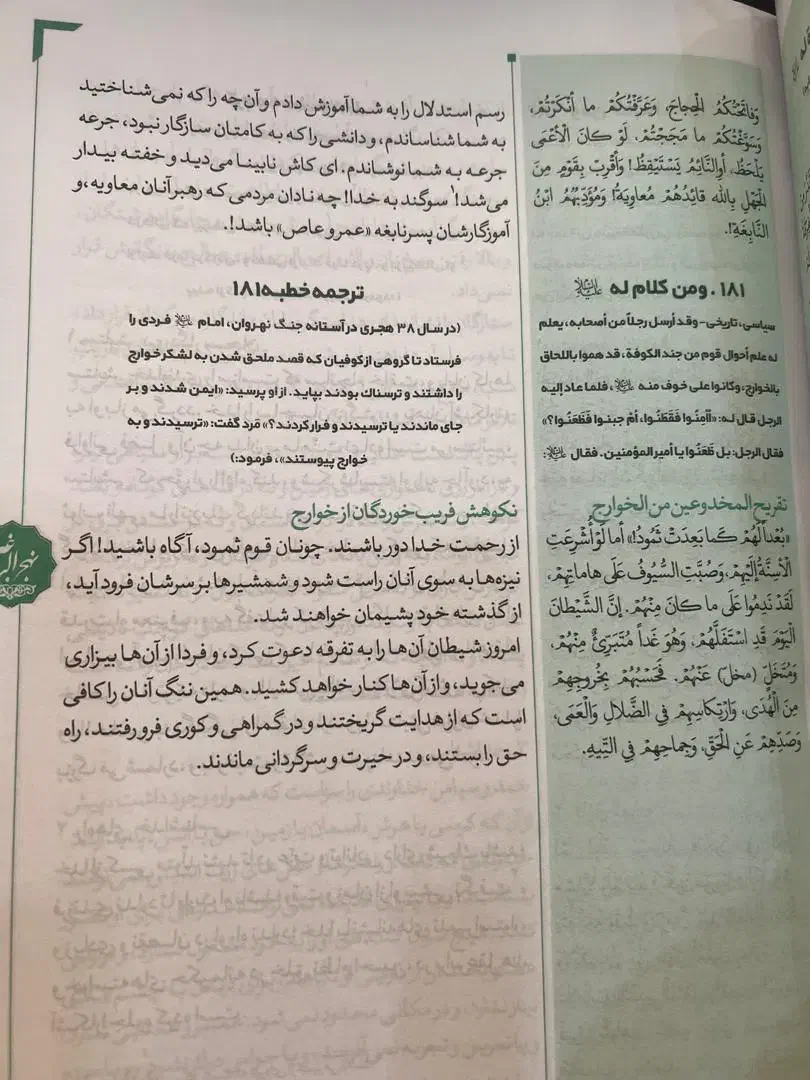 وَفاتَحْتُكُمُ الْحِجاجَ، وَعَرَّفْتُكُمْ ما أَنْكَرْتُمْ،
وَسَوَّغْتُكُمْ ما مَجَجْتُمْ. لَوْ كانَ الْأَعْمَى
يَلْحَظُ، أَوِ النَّائِمُ يَسْتَيْقِظُ! وَأَقْرِبْ بِقَوْمٍ مِنَ
الْجَهْلِ بِاللّٰهِ قائِدُهُمْ مُعاوِيَةُ! وَمُؤَدِّبُهُمُ ابْنُ
النَّابِغَةِ!.
۱۸۱. ومن كلام له علیه السلام
سیاسی، تاریخی - وقد أرسل رجلاً من أصحابه، یعلم
له علم أحوال قوم من جند الكوفة، قد هموا باللحاق
بالخوارج، وكانوا على خوف منه علیه السلام، فلما عاد إلیه
الرجل قال له: «أأمِنُوا فَقَطَنُوا، أمْ جبنوا فَظَعَنُوا؟»
فقال الرجل: بل ظَعَنُوا یا أمیر المؤمنین. فقال علیه السلام:
تقریح المخدوعین من الخوارج
«بُعْداً لَهُمْ كَما بَعِدَتْ ثَمُودُ!» أَما لَوْ أُشْرِعَتِ
الْأَسِنَّةُ إِلَيْهِمْ، وَصُبَّتِ السُّيُوفُ عَلَى هاماتِهِمْ،
لَقَدْ نَدِمُوا عَلَى ما كانَ مِنْهُمْ. إِنَّ الشَّيْطانَ
الْيَوْمَ قَدِ اسْتَفَلَّهُمْ، وَهُوَ غَداً مُتَبَرِّئٌ مِنْهُمْ،
وَمُتَخَلٍّ (مخلّ) عَنْهُمْ. فَحَسْبُهُمْ بِخُرُوجِهِمْ
مِنَ الْهُدَى، وَارْتِكاسِهِمْ فِي الضَّلالِ وَالْعَمَى،
وَصَدِّهِمْ عَنِ الْحَقِّ، وَجِماحِهِمْ فِي التِّيهِ.
رسم استدلال را به شما آموزش دادم و آن چه را که نمی‌شناختید
به شما شناساندم، و دانشی را که به کامتان سازگار نبود، جرعه
جرعه به شما نوشاندم. ای کاش نابینا می‌دید و خفته بیدار
می‌شد!۱ سوگند به خدا! چه نادان مردمی که رهبر آنان معاویه، و
آموزگارشان پسر نابغه «عمرو عاص» باشد!.
ترجمه خطبه ۱۸۱
(در سال ۳۸ هجری در آستانه جنگ نهروان، امام علیه السلام فردی را
فرستاد تا گروهی از کوفیان که قصد ملحق شدن به لشکر خوارج
را داشتند و ترسناک بودند بپاید. از او پرسید: «ایمن شدند و بر
جای ماندند یا ترسیدند و فرار کردند؟» مَرد گفت: «ترسیدند و به
خوارج پیوستند»، فرمود:)
نکوهش فریب خوردگان از خوارج
از رحمت خدا دور باشند. چونان قوم ثمود، آگاه باشید! اگر
نیزه‌ها به سوی آنان راست شود و شمشیرها بر سرشان فرود آید،
از گذشته خود پشیمان خواهند شد.
امروز شیطان آن‌ها را به تفرقه دعوت کرد، و فردا از آن‌ها بیزاری
می‌جوید، و از آن‌ها کنار خواهد کشید. همین ننگ آنان را کافی
است که از هدایت گریختند و در گمراهی و کوری فرو رفتند، راه
حق را بستند، و در حیرت و سرگردانی ماندند.